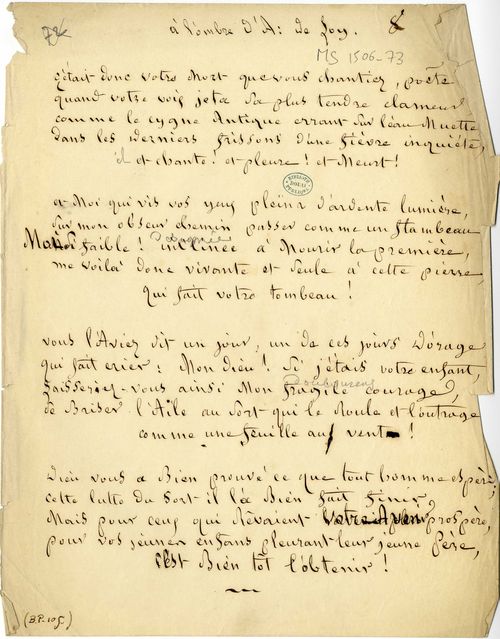 à l'ombre d'A: de Loy.
8
MS 1506-73
c'était donc votre Mort que vous chantiez, poète
quand votre voix jeta sa plus tendre clameur
comme le cygne Antique errant sur l'eau Muette
dans les derniers frissons d'une fièvre inquiète,
il et chante! et pleure! et Meurt!
BIBLIOTH
DOUAI
PUBLIQUE
et Moi qui vis vos yeux pleins d'ardente lumière,
Sur mon obscur chemin passer comme un flambeau
Moi faible! inclinée à Mourir la première,
me voilà donc vivante et seule à cette pierre
qui fait votre tombeau!
vous l'Aviez dit un jour, un de ces jours D'orage
qui fait crier: Mon dieu! Si j'étais votre enfant,
Laisseriez-vous ainsi Mon fragile courage,
douloureux
se Briser l'Aile au Sort qui le Roule et l'outrage
comme une feuille au vent!
Dieu vous a Bien prouvé ce que tout homme espère,
cette lutte du Sort il l'a Bien fait finir,
Mais pour ceux qui Rêvaient votre Avenir prospère,
pour vos jeunes enfans pleurant leur jeune Père,
c'est Bien tôt l'obtenir!
(B.P. 105)